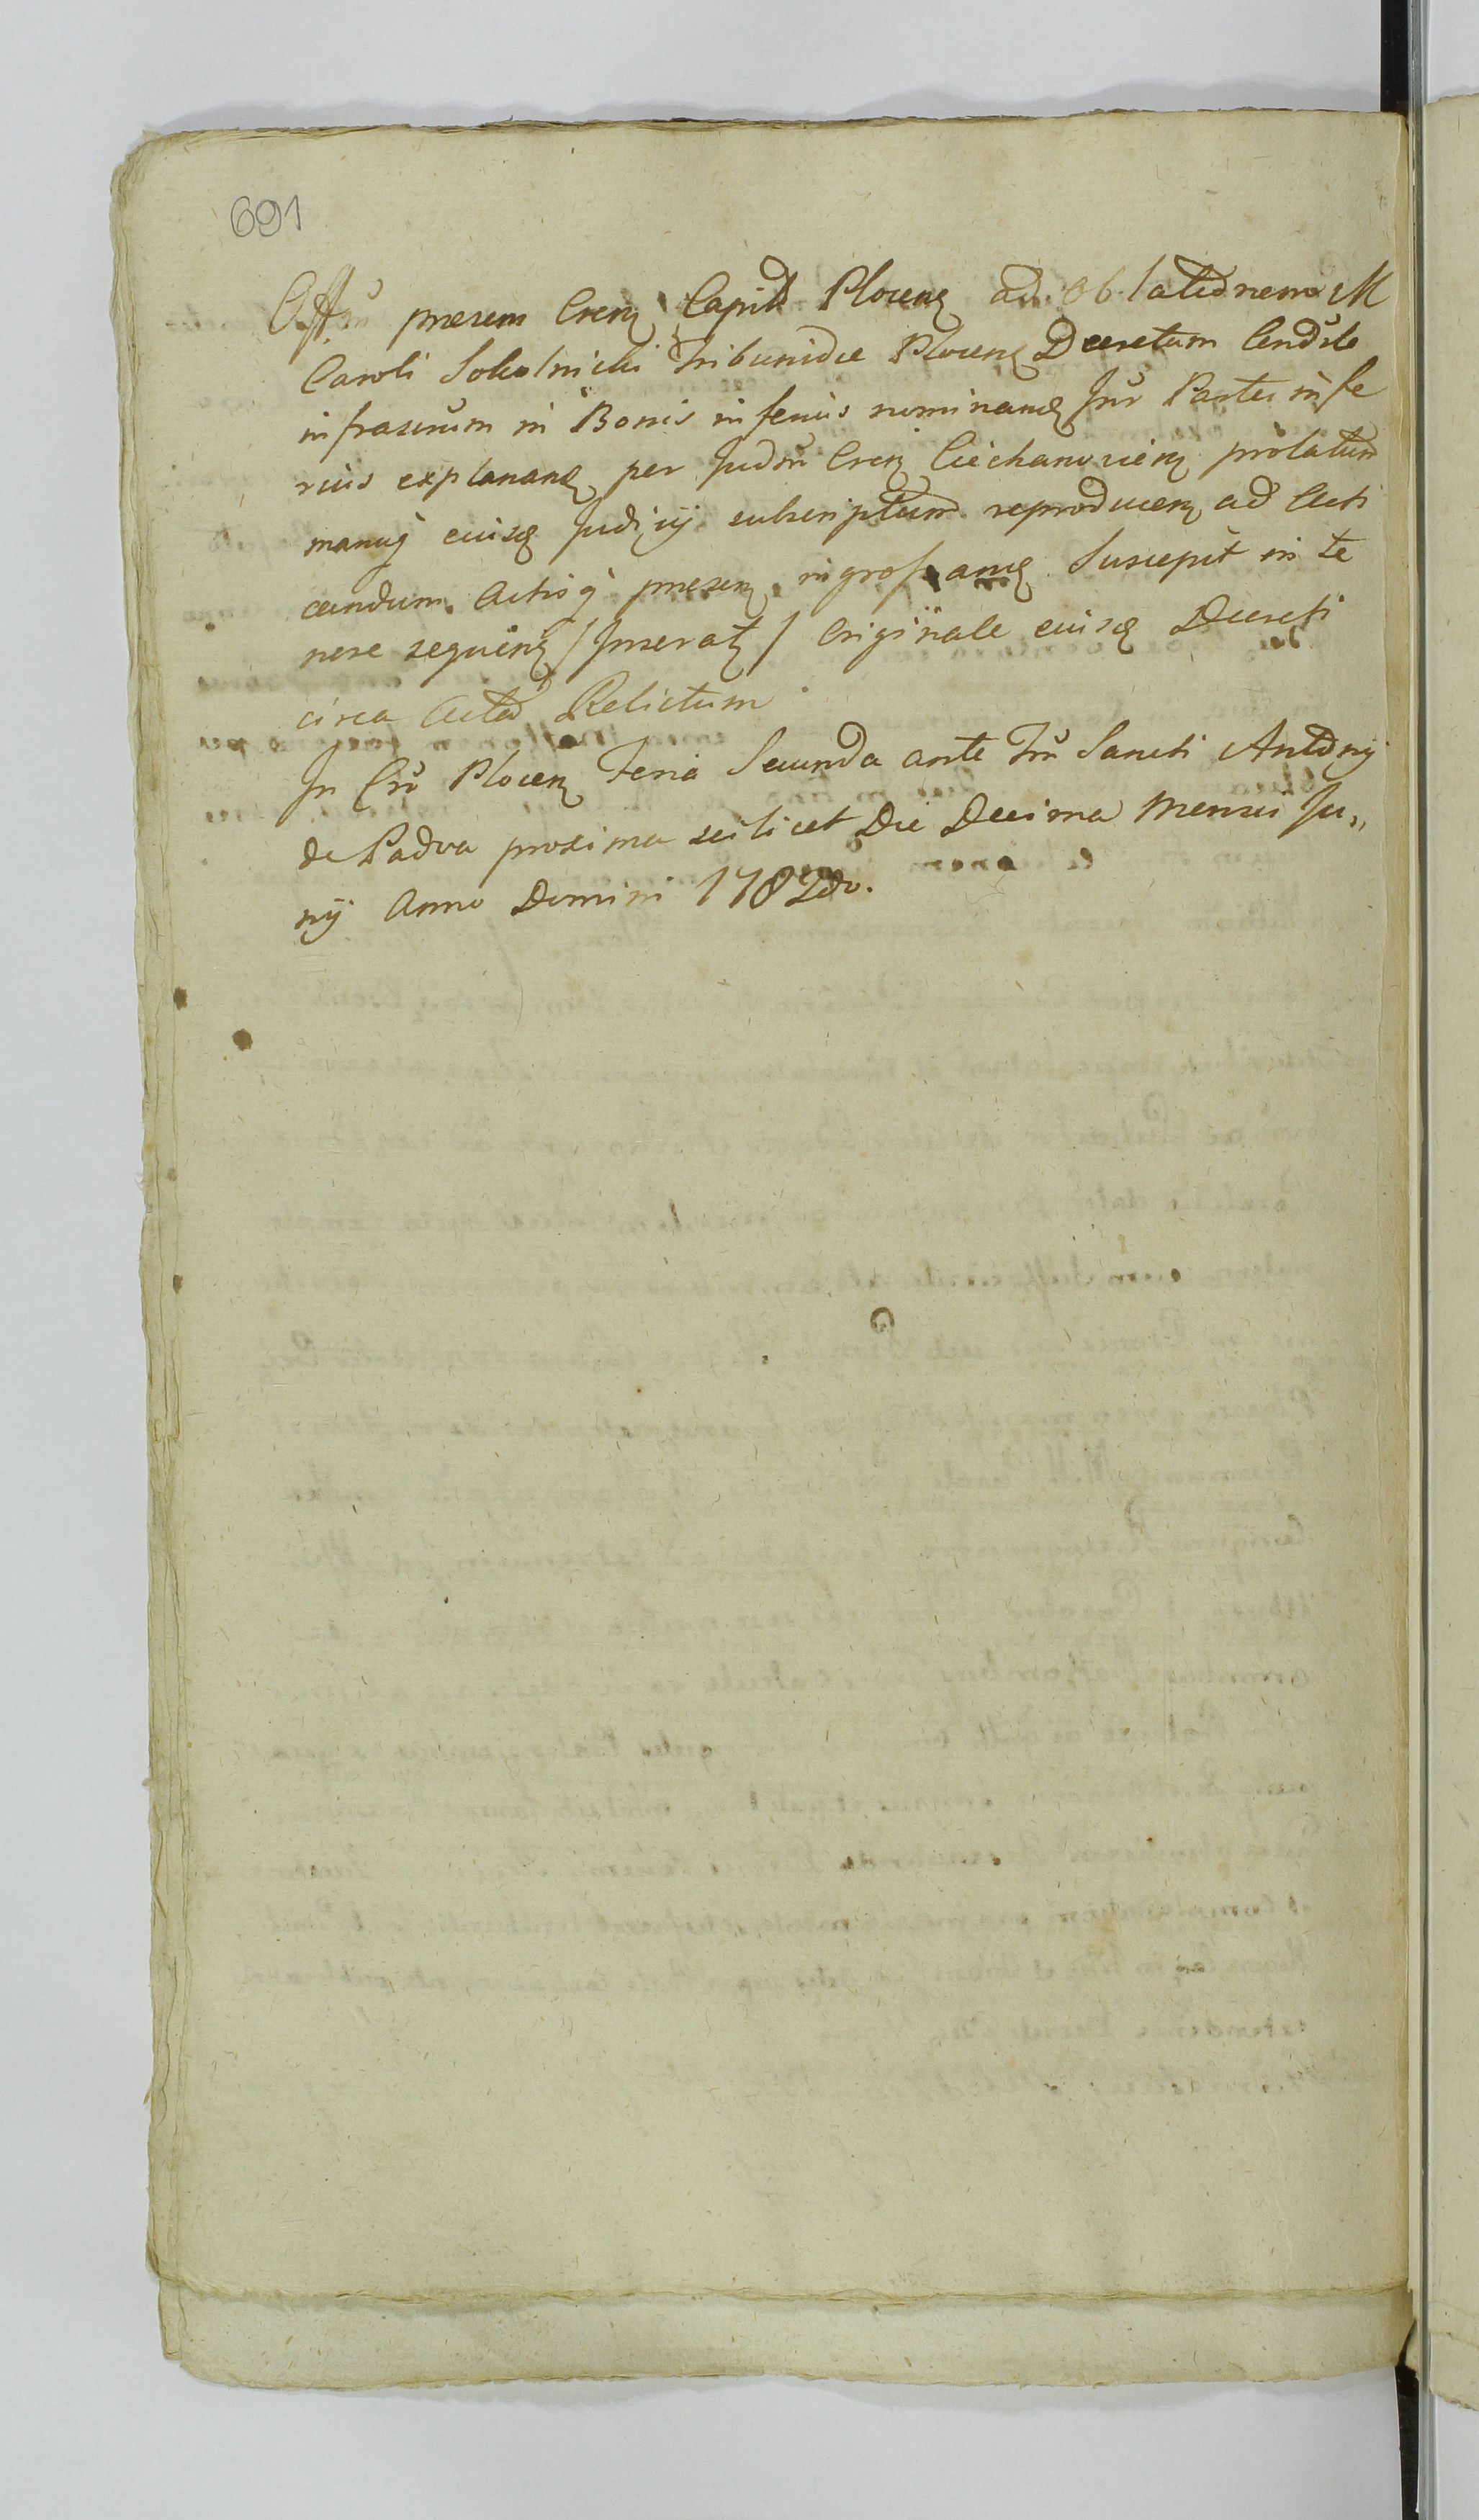 691
Offm presens Crens Capitl Plocens ad Oblationem M
Caroli Sokolnicki Tribunidae Plocens Decretum Condsle
infrascrum in Bonis inferius nominand Inr Partes infe
rius explanand per Judm Crens Ciechanoviens prolatum
manuq eiusd Judicij subscriptum reproducens ad Acti
candum Actisq presens ingrossand Suscepit in te
nore sequens / Inserat / Originale eiusd Decreti
circa Acta Relictum
In Cro Plocens Feria Secunda ante Fm Sancti Antony
de Padva proxima scilicet Die Decima Mensis Ju„
nij Anno Domini 1782do.